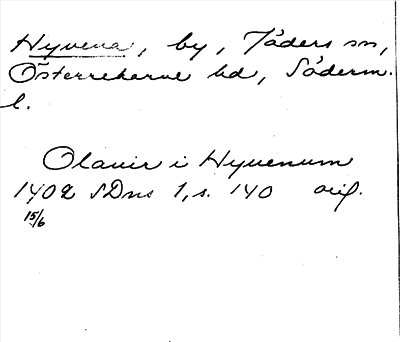 Hyvena, by, Jäders sn,
Österrekarne hd, Söderm.
l.
Olauir i Hyvenum
1402 SDns 1, s. 140 orig.
15/6